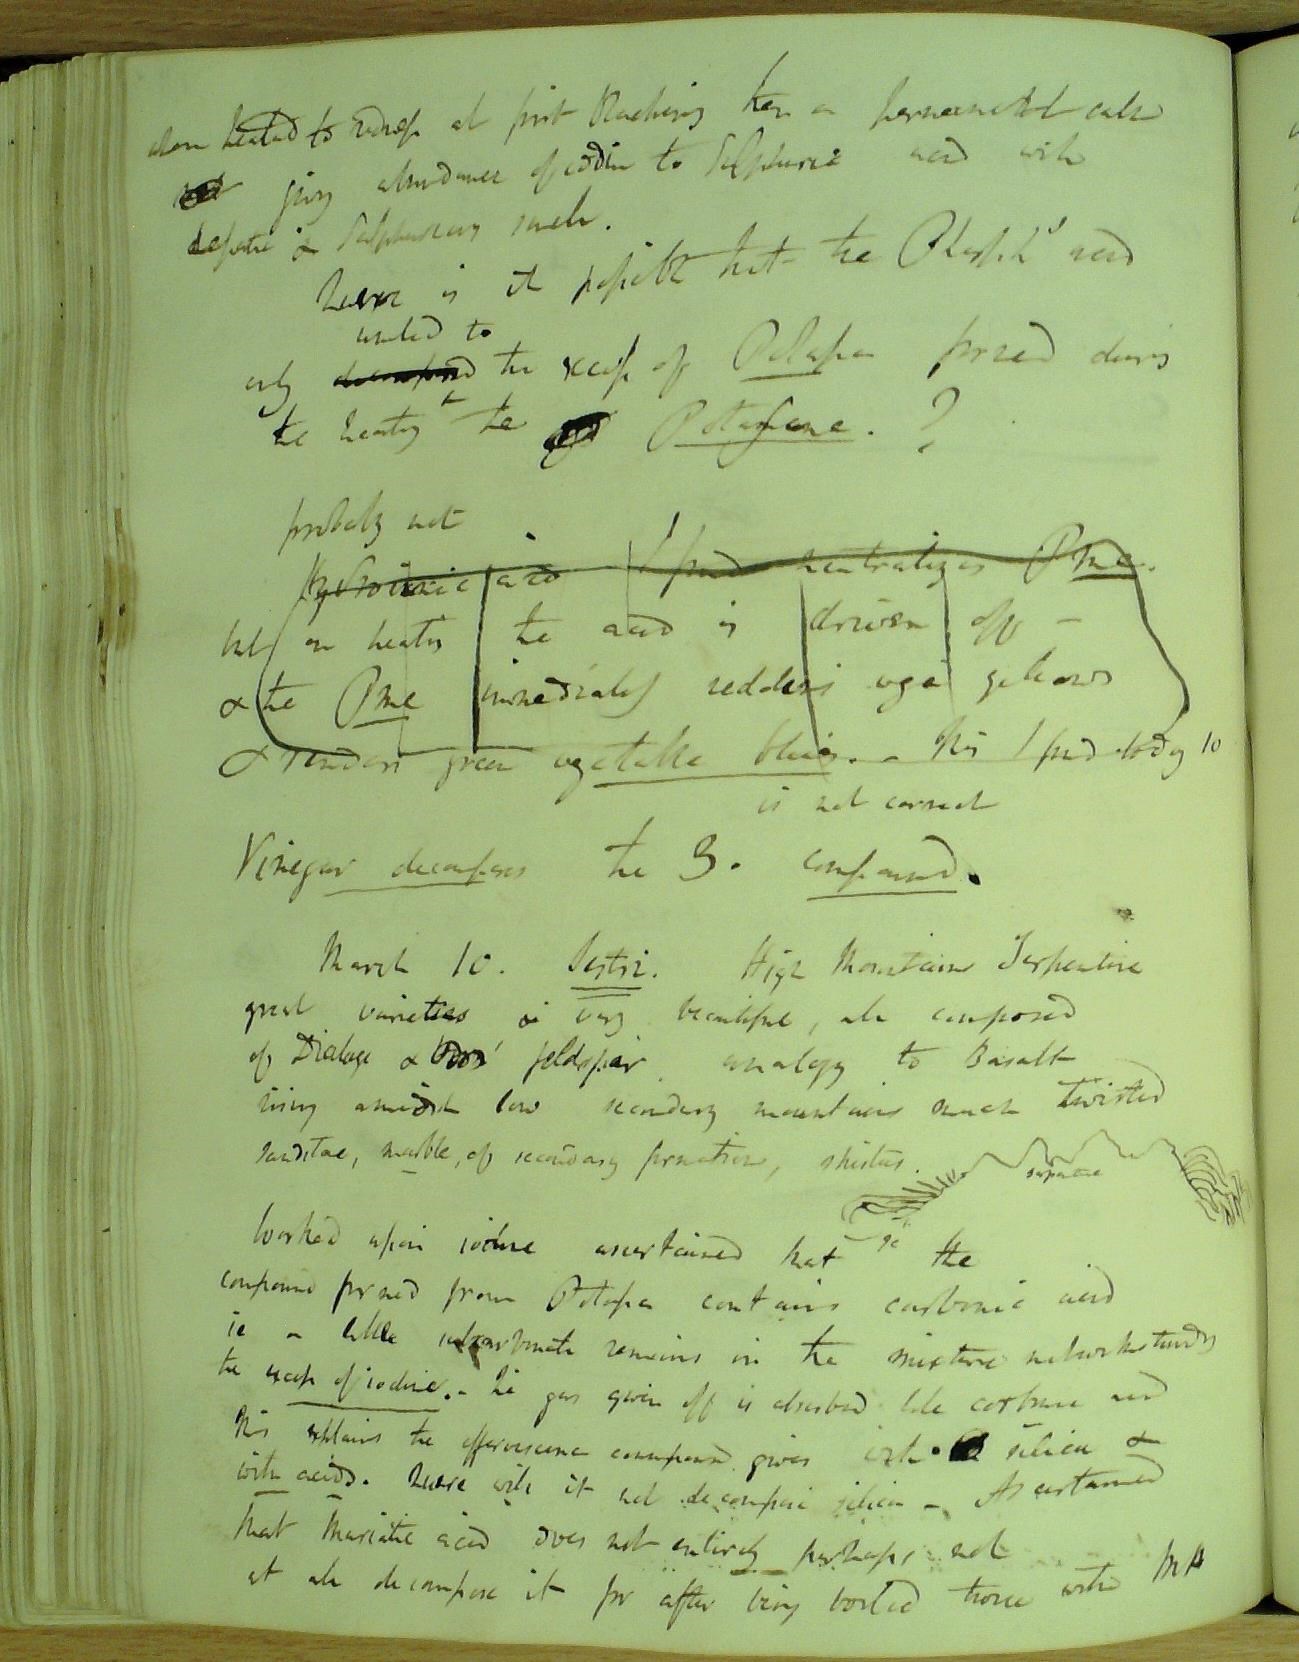 when heated to redness at first blackening then a permanent calx
giving abundance of iodine to Sulphuric acid with
hepatic & Sulphureous smell.
Quere is it possible that the Phosph.c acid
united to
only decomposed the excess of Potassa formed during
the heating the Potassane. ?
probably not
Hydroionic acid I find neutralizes Pme.
but on heating the acid is driven off –
& the Pme immediately reddens again yellows
& renders green vegetable blues. – This I find today 10
is not correct
Vinegar decomposes the 3. compound.
March 10. Sestri. High Mountains Serpentine
great varieties & very beautiful, all composed
of Dialage & feldspar analogy to Basalt
rising amidst low secondary mountains much twisted
sandstone, marble, of secondary formation, shistus.
serpentine
Worked upon iodine ascertained that the
compound formed from Potassa contains carbonic acid
ie a little subcarbonate remains in the mixture notwithstanding
the excess of iodine. – The gas given off is absorbed like carbonic acid
This explains the effervescence compound gives with silica &
with acids. Quere will it not decompose silica – Ascertained
that Muriatic acid does not entirely perhaps not
at all decompose it for after being boiled twice with MA